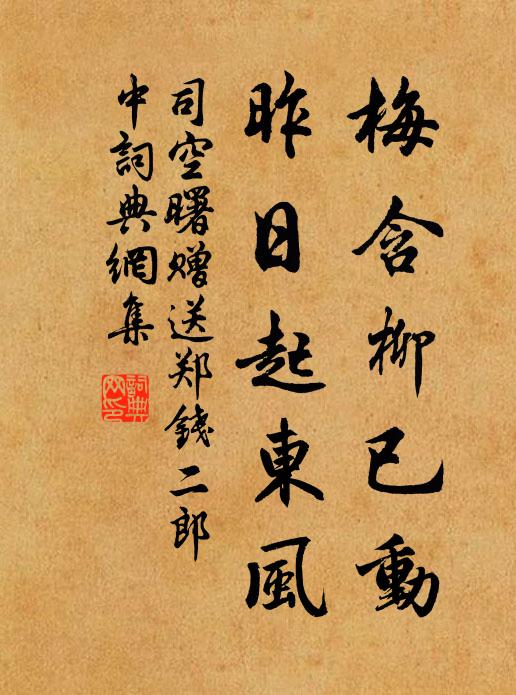 梅含柳已動
昨日起東風
司空曙赠送郑錢二郎
中詞典網集
詞典网印